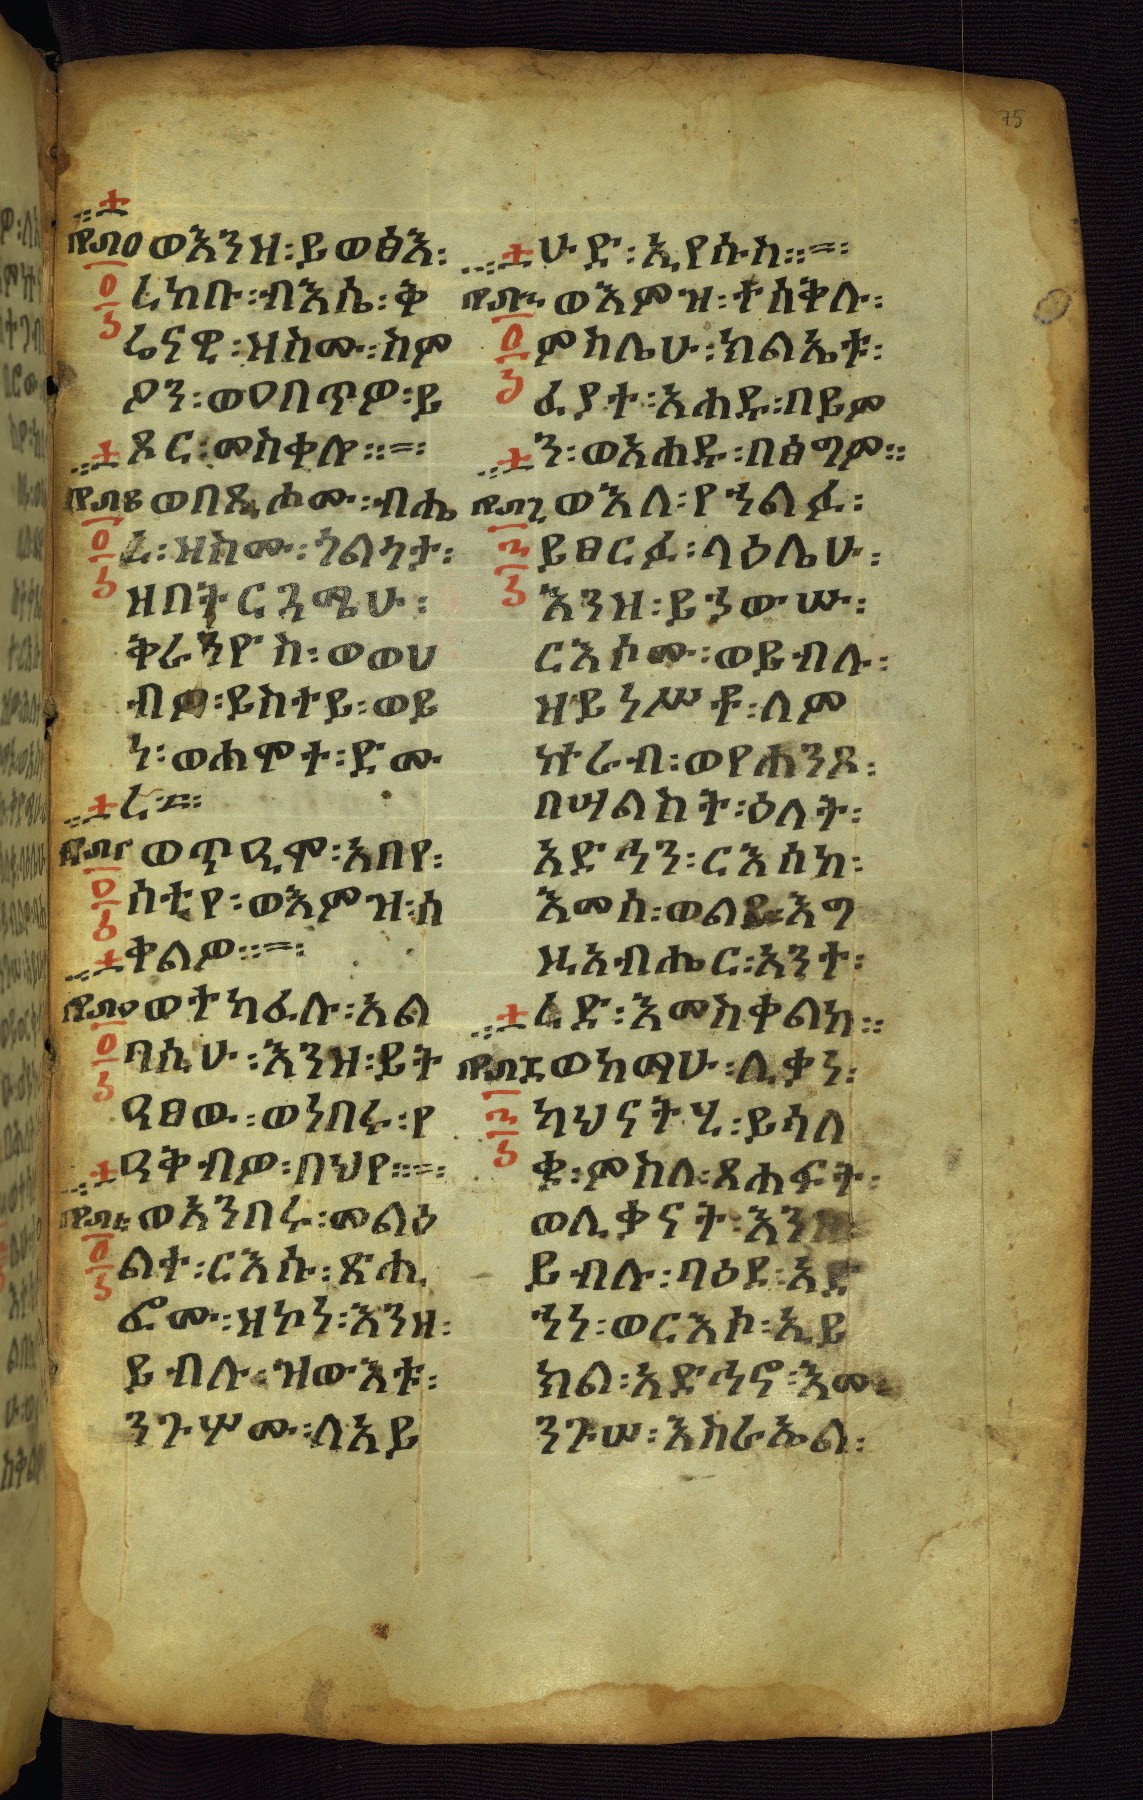 75
ወእንዘ፡ይወፅእ፡
ረከቡ፡ብእሴ፡ቅ
ሬናዊ፡ዝስሙ፡ስም
ዖን፡ወዐበጥዎ፡ይ
ጾር፡መስቀሎ።
ወበጺሖሙ፡ብሔ
ረ፡ዝስሙ፡ጎልጎታ፡
ዘበትርጓሜሁ፡
ቅራንዮስ፡ወወሀ
ብዎ፡ይስተይ፡ወይ
ነ፡ወሐሞተ፡ድሙ
ረ።
ወጥዒሞ፡አበየ፡
ሰቲየ፡ወእምዝ፡ሰ
ቀልዎ።
ወተካፈሉ፡አል
ባሲሁ፡እንዘ፡ይት
ዓፀው፡ወነበሩ፡የ
ዓቅብዎ፡በህየ።
ወአንበሩ፡መልዕ
ልተ፡ርእሱ፡ጽሒ
ፎሙ፡ዝኮነ፡እንዘ፡
ይብሉ፡ዝውእቱ፡
ንጉሦሙ፡ለአይ
ሁድ፡ኢየሱስ።
ወእምዝ፡ተሰቅሉ፡
ምስሌሁ፡ክልኤቱ፡
ፈያተ፡አሐዱ፡በይም
ን፡ወአሐዱ፡በፅግም።
ወእለ፡የኀልፉ፡
ይፀርፉ፡ላዕሌሁ፡
እንዘ፡ይኀውሡ፡
ርእሶሙ፡ወይብሉ፡
ዝይነሥቶ፡ለም
ኵራብ፡ወየሐንጾ፡
በሣልስት፡ዕለት፡
አድኅን፡ርእሰከ፡
እመሰ፡ወልደ፡እግ
ዚአብሔር፡አንተ፡
ረድ፡እመስቀልከ።
ወከማሁ፡ሊቃነ፡
ካህናትሂ፡ይሳለ
ቁ፡ምስለ፡ጸሐፍት፡
ወሊቃናት፡እንዘ፡
ይብሉ፡ባዕደ፡አድ
ኀነ፡ወርእሶ፡ኢይ
ክል፡አድኅኖ፡እመ፡
ንጉሠ፡እስራኤል፡